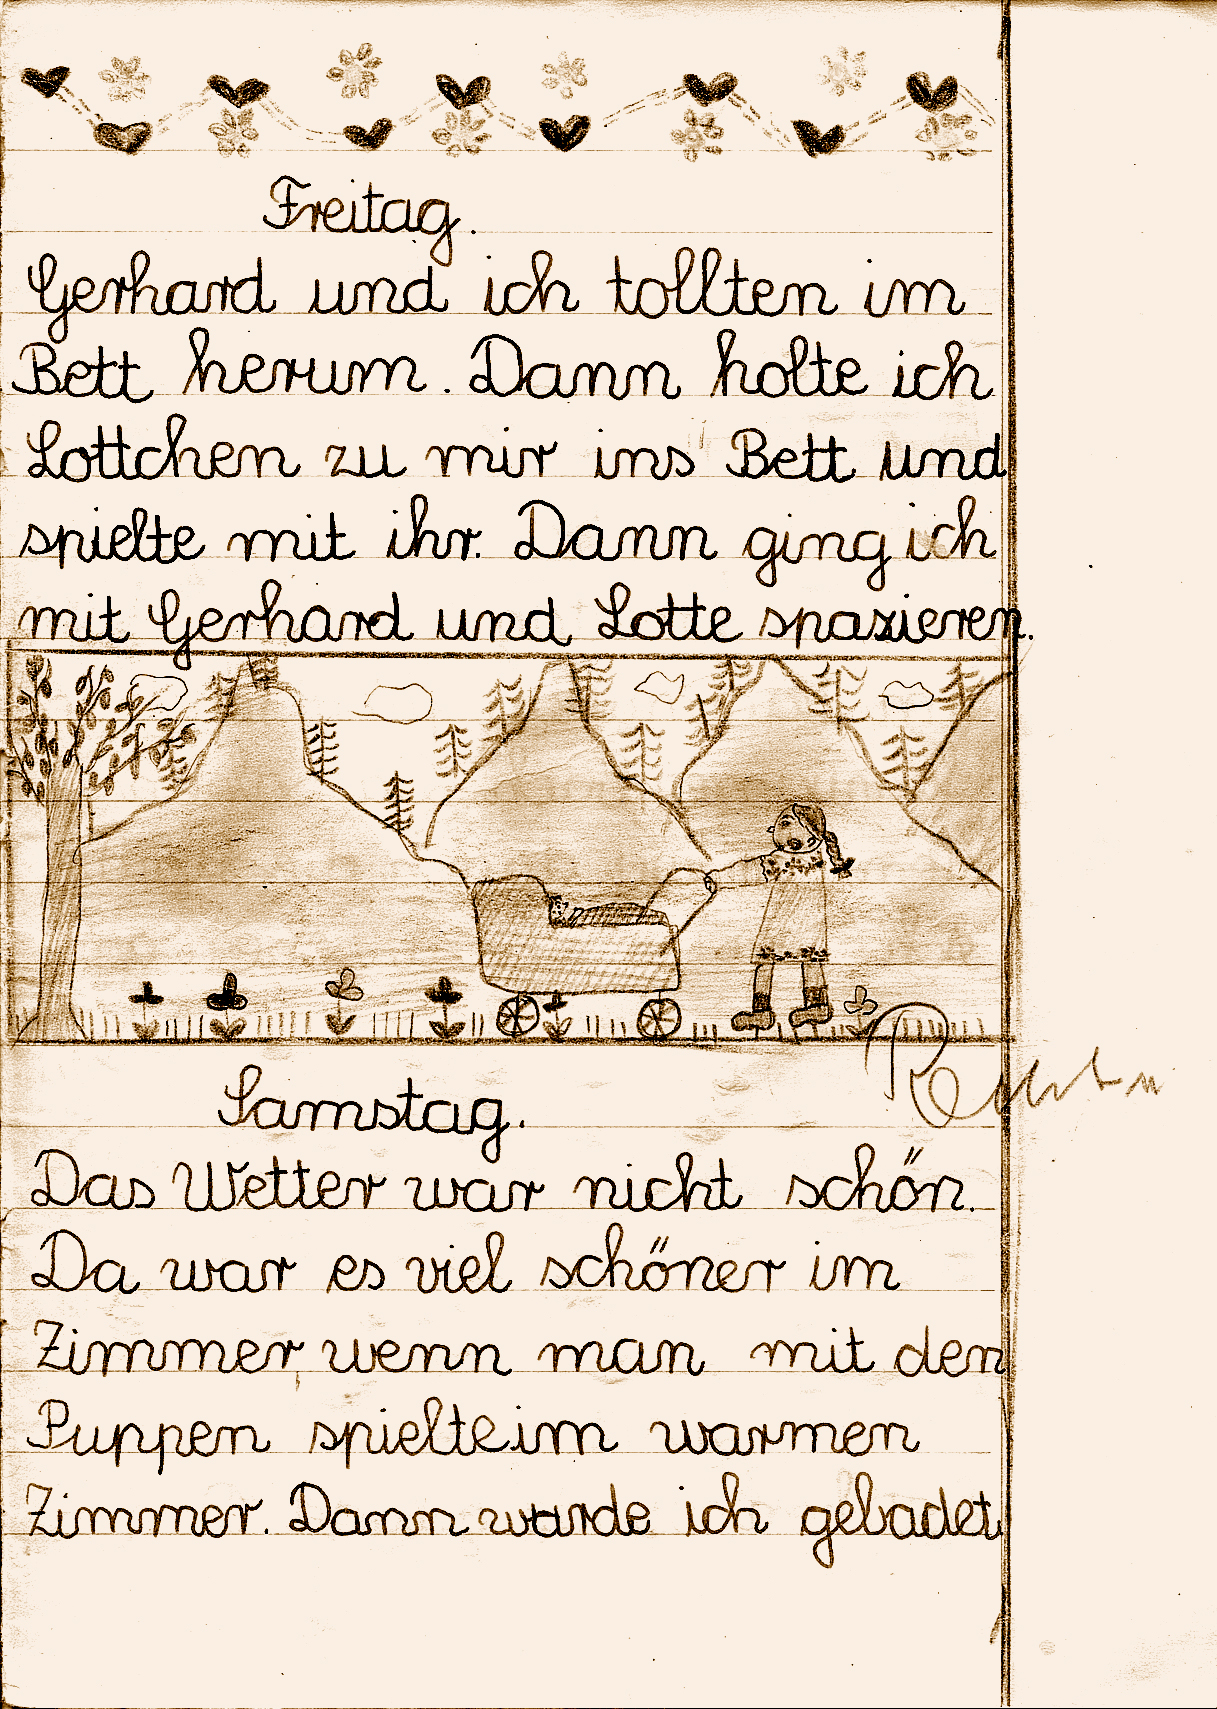 Freitag.
Gerhard und ich tollten im
Bett herum. Dann holte ich
Lottchen zu mir ins Bett und
spielte mit ihr. Dann ging ich
mit Gerhard und Lotte spazieren.
Samstag.
Das Wetter war nicht schön.
Da war es viel schöner im
Zimmer, wenn man mit den
Puppen spielte im warmen
Zimmer. Dann wurde ich gebadet.